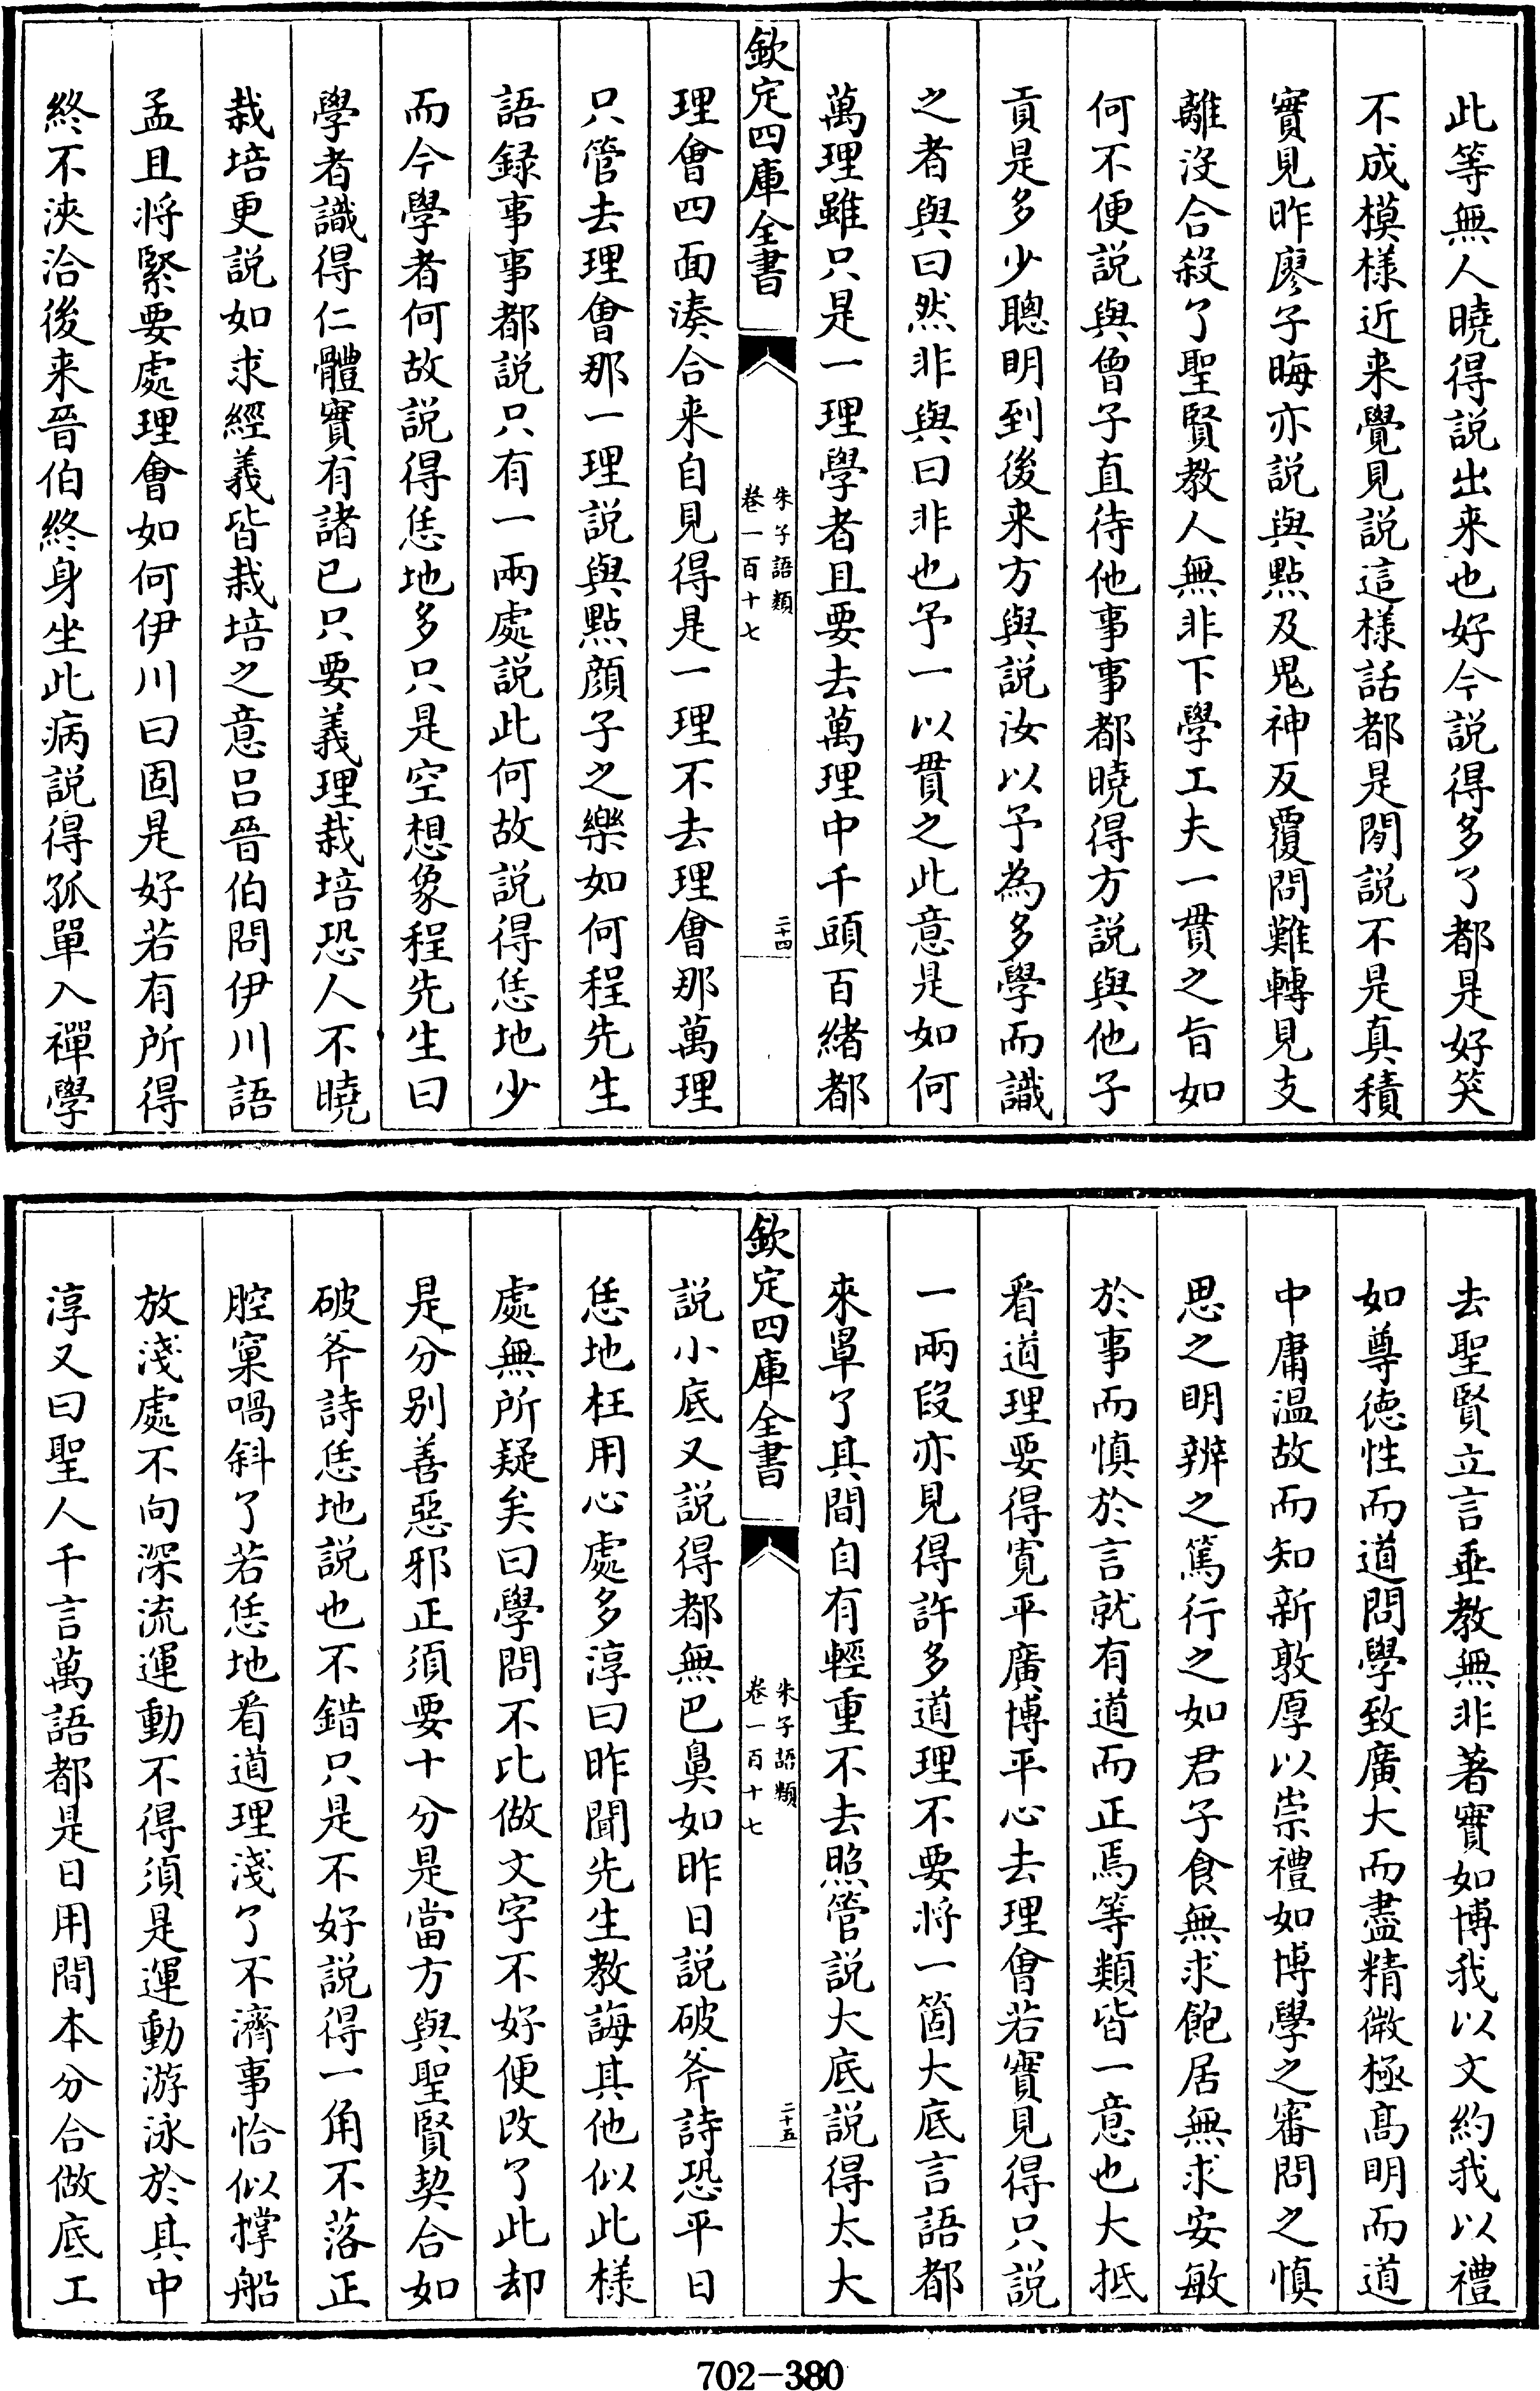 此等無人曉得説出来也好今説得多了都是好笑
不成模様近来覺見説這様話都是閒説不是真積
實見昨廖子晦亦説與點及鬼神反覆問難轉見支
離沒合殺了聖賢教人無非下學工夫一貫之旨如
何不便説與曾子直待他事事都曉得方説與他子
貢是多少聰明到後来方與説汝以予為多學而識
之者與曰然非與曰非也予一以貫之此意是如何
萬理雖只是一理學者且要去萬理中千頭百緒都
欽定四庫全書
朱子語類
卷一百十七
二十四
理會四面湊合来自見得是一理不去理會那萬理
只管去理會那一理説與點顔子之樂如何程先生
語録事事都説只有一兩處説此何故説得恁地少
而今學者何故説得恁地多只是空想象程先生曰
學者識得仁體實有諸已只要義理栽培恐人不曉
栽培更説如求經義皆栽培之意呂晉伯問伊川語
孟且将緊要處理會如何伊川曰固是好若有所得
終不浹洽後来晉伯終身坐此病説得孤單入禪學
去聖賢立言垂教無非著實如博我以文約我以禮
如尊徳性而道問學致廣大而盡精微極高明而道
中庸温故而知新敦厚以崇禮如博學之審問之慎
思之明辨之篤行之如君子食無求飽居無求安敏
於事而慎於言就有道而正焉等類皆一意也大抵
看道理要得寛平廣博平心去理會若實見得只説
一兩段亦見得許多道理不要将一箇大底言語都
來罩了其間自有輕重不去照管説大底説得太大
欽定四庫全書
朱子語類
卷一百十七
二十五
説小底又説得都無巴鼻如昨日説破斧詩恐平日
恁地枉用心處多淳曰昨聞先生教誨其他似此様
處無所疑矣曰學問不比做文字不好便改了此却
是分别善惡邪正須要十分是當方與聖賢契合如
破斧詩恁地説也不錯只是不好説得一角不落正
腔窠喎斜了若恁地看道理淺了不濟事恰似撑船
放淺處不向深流運動不得須是運動游泳於其中
淳又曰聖人千言萬語都是日用間本分合做底工
702-380